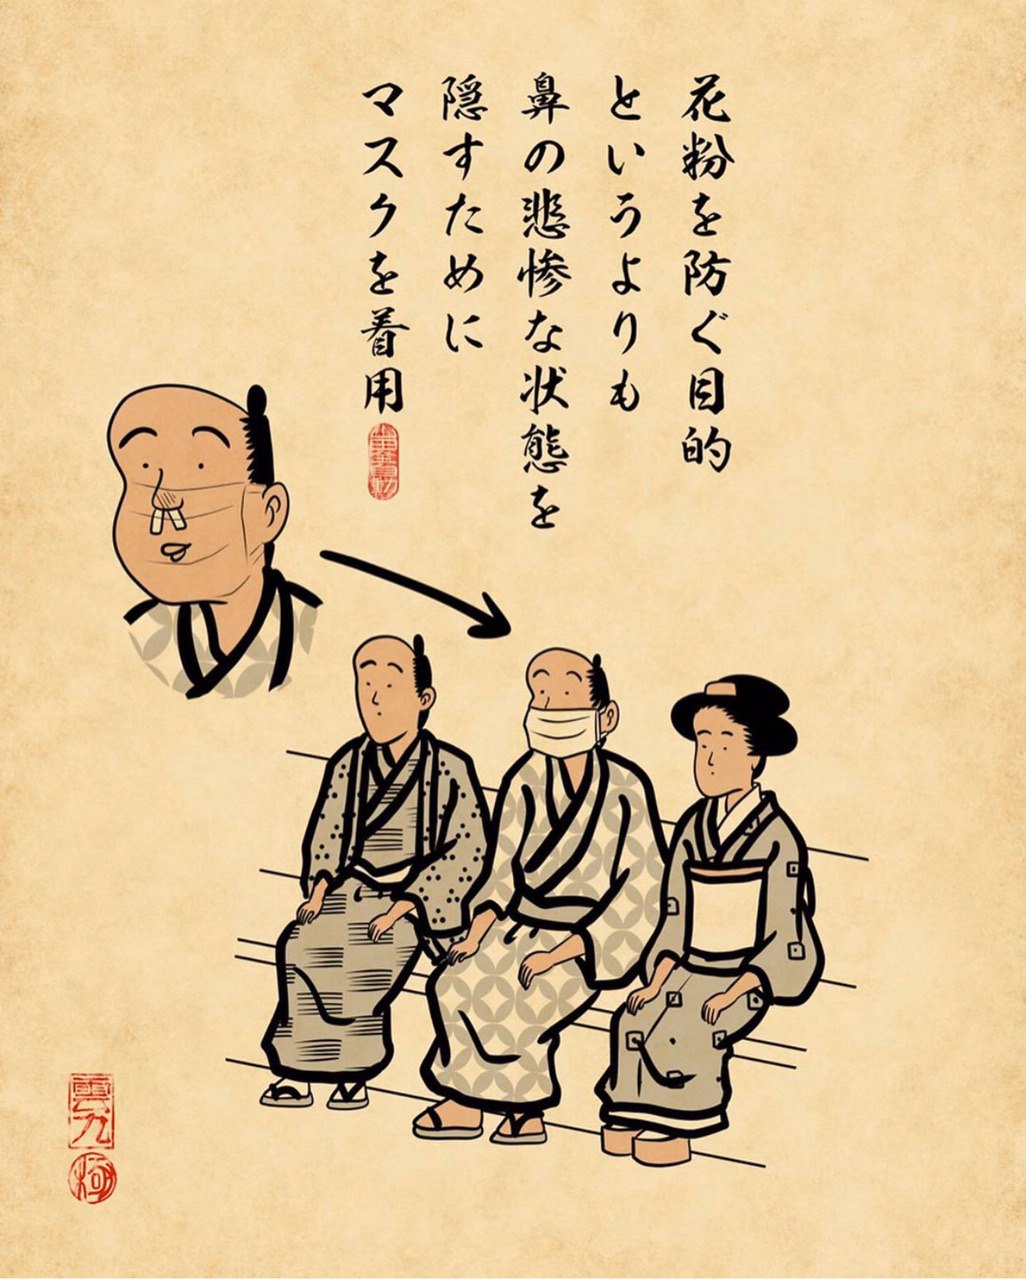 花粉を防ぐ目的
というよりも
鼻の悲惨な状態を
隠すために
マスクを着用